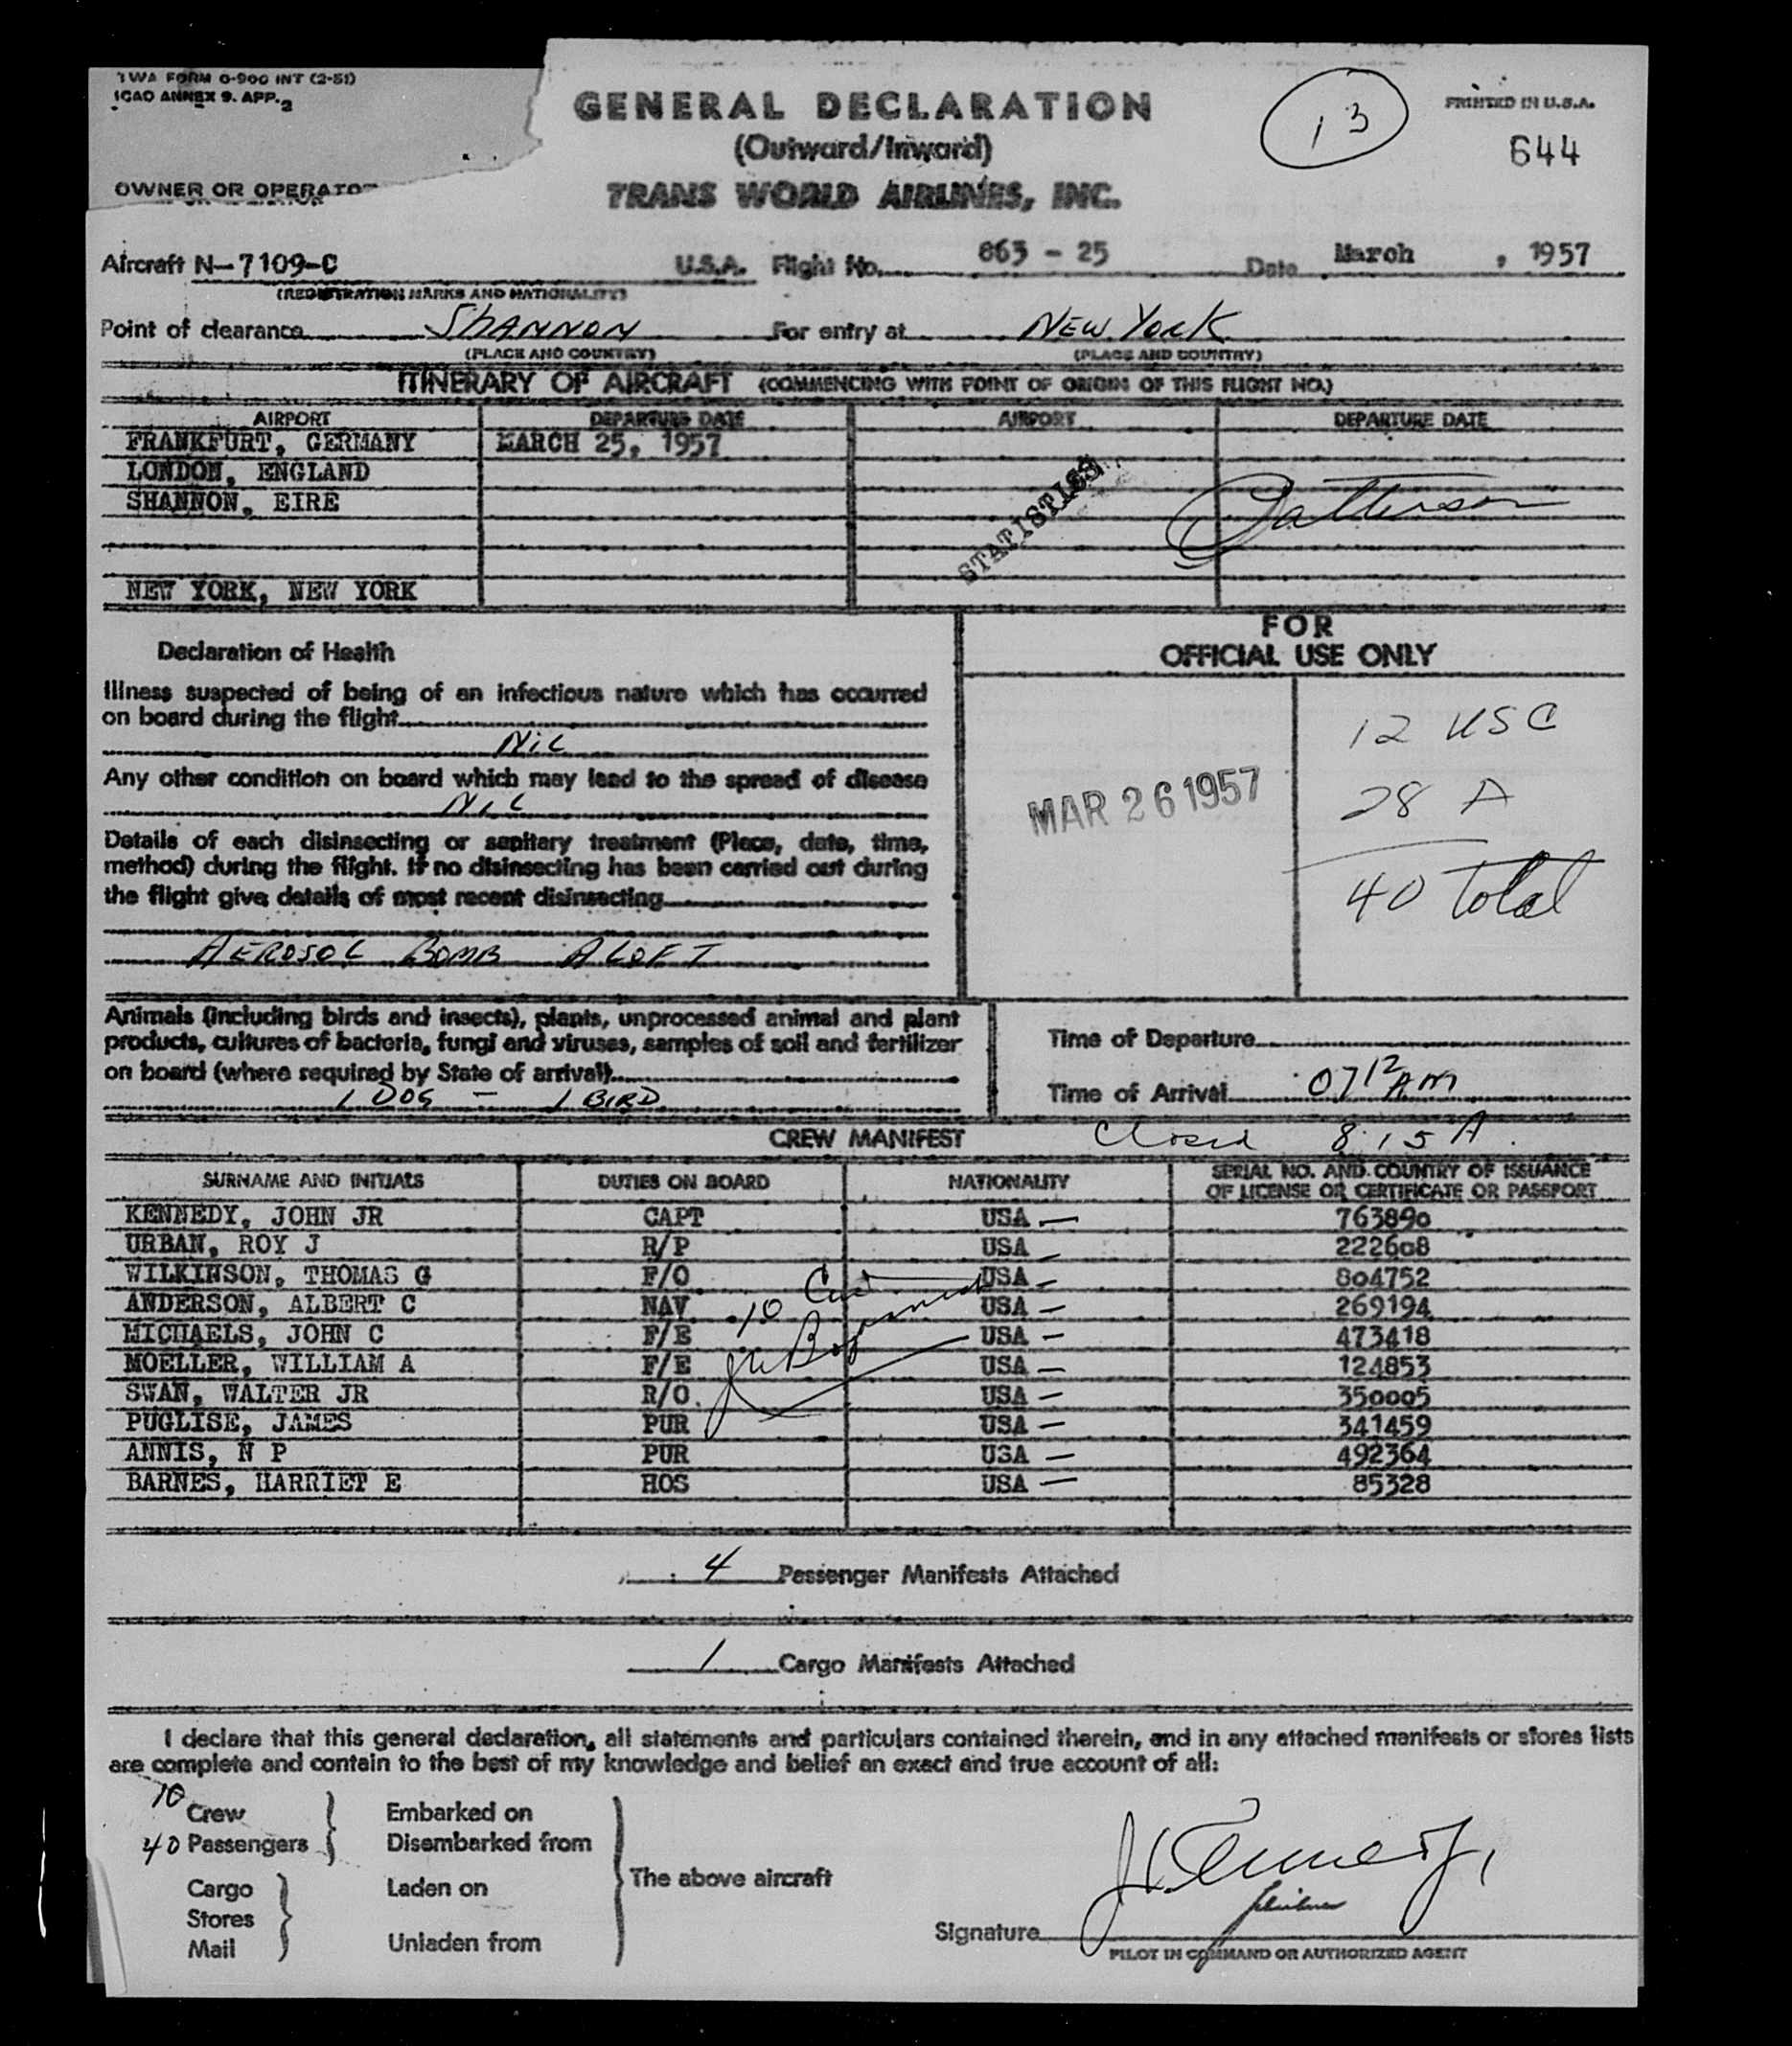 TWA FORM O-900 INT (2-51)
ICAO ANNEX 9. APP. 2
GENERAL DECLARATION
(Outward/Inward)
13
PRINTED IN U.S.A.
644
OWNER OR OPERATOR
TRANS WORLD AIRLINES, INC.
Aircraft N-7109-C U.S.A. Flight No. 863 - 25 Date March , 1957
(REGISTRATION MARKS AND NATIONALITY)
Point of clearance SHANNON For entry at NEW YORK
(PLACE AND COUNTRY) (PLACE AND COUNTRY)
ITINERARY OF AIRCRAFT (COMMENCING WITH POINT OF ORIGIN OF THIS FLIGHT NO.)
AIRPORT DEPARTURE DATE AIRPORT DEPARTURE DATE
FRANKFURT, GERMANY MARCH 25, 1957
LONDON, ENGLAND
SHANNON, EIRE
STATISTICS
Patterson
NEW YORK, NEW YORK
Declaration of Health
Illness suspected of being of an infectious nature which has occurred
on board during the flight
NIL
Any other condition on board which may lead to the spread of disease
NIL
Details of each disinsecting or sanitary treatment (Place, date, time,
method) during the flight. If no disinsecting has been carried out during
the flight give details of most recent disinsecting
AEROSOL BOMB ALOFT
FOR
OFFICIAL USE ONLY
MAR 26 1957
12 USC
28 A
40 Total
Animals (including birds and insects), plants, unprocessed animal and plant
products, cultures of bacteria, fungi and viruses, samples of soil and fertilizer
on board (where required by State of arrival)
1 DOG - 1 BIRD
Time of Departure
Time of Arrival 0712 AM
CREW MANIFEST
Closed 8:15 A.
SURNAME AND INITIALS DUTIES ON BOARD NATIONALITY SERIAL NO. AND COUNTRY OF ISSUANCE
OF LICENSE OR CERTIFICATE OR PASSPORT
KENNEDY, JOHN JR CAPT USA — 763890
URBAN, ROY J R/P USA — 222608
WILKINSON, THOMAS G F/O USA — 804752
ANDERSON, ALBERT C NAV USA — 269194
MICHAELS, JOHN C F/E USA — 473418
MOELLER, WILLIAM A F/E USA — 124853
SWAN, WALTER JR R/O USA — 350005
PUGLISE, JAMES PUR USA — 341459
ANNIS, N P PUR USA — 492364
BARNES, HARRIET E HOS USA — 85328
10
4 Passenger Manifests Attached
1 Cargo Manifests Attached
I declare that this general declaration, all statements and particulars contained therein, and in any attached manifests or stores lists
are complete and contain to the best of my knowledge and belief an exact and true account of all:
10 Crew
40 Passengers
Embarked on
Disembarked from
Cargo
Stores
Mail
Laden on
Unladen from
The above aircraft
Signature
PILOT IN COMMAND OR AUTHORIZED AGENT